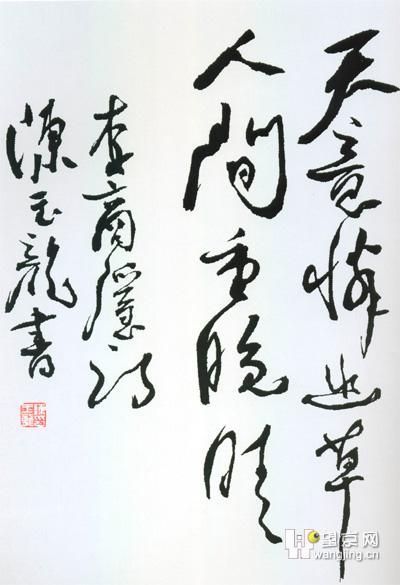 天意憐幽草
人間重晚晴
李商隱詩
陳玉龍書
望京网
wangjing.cn